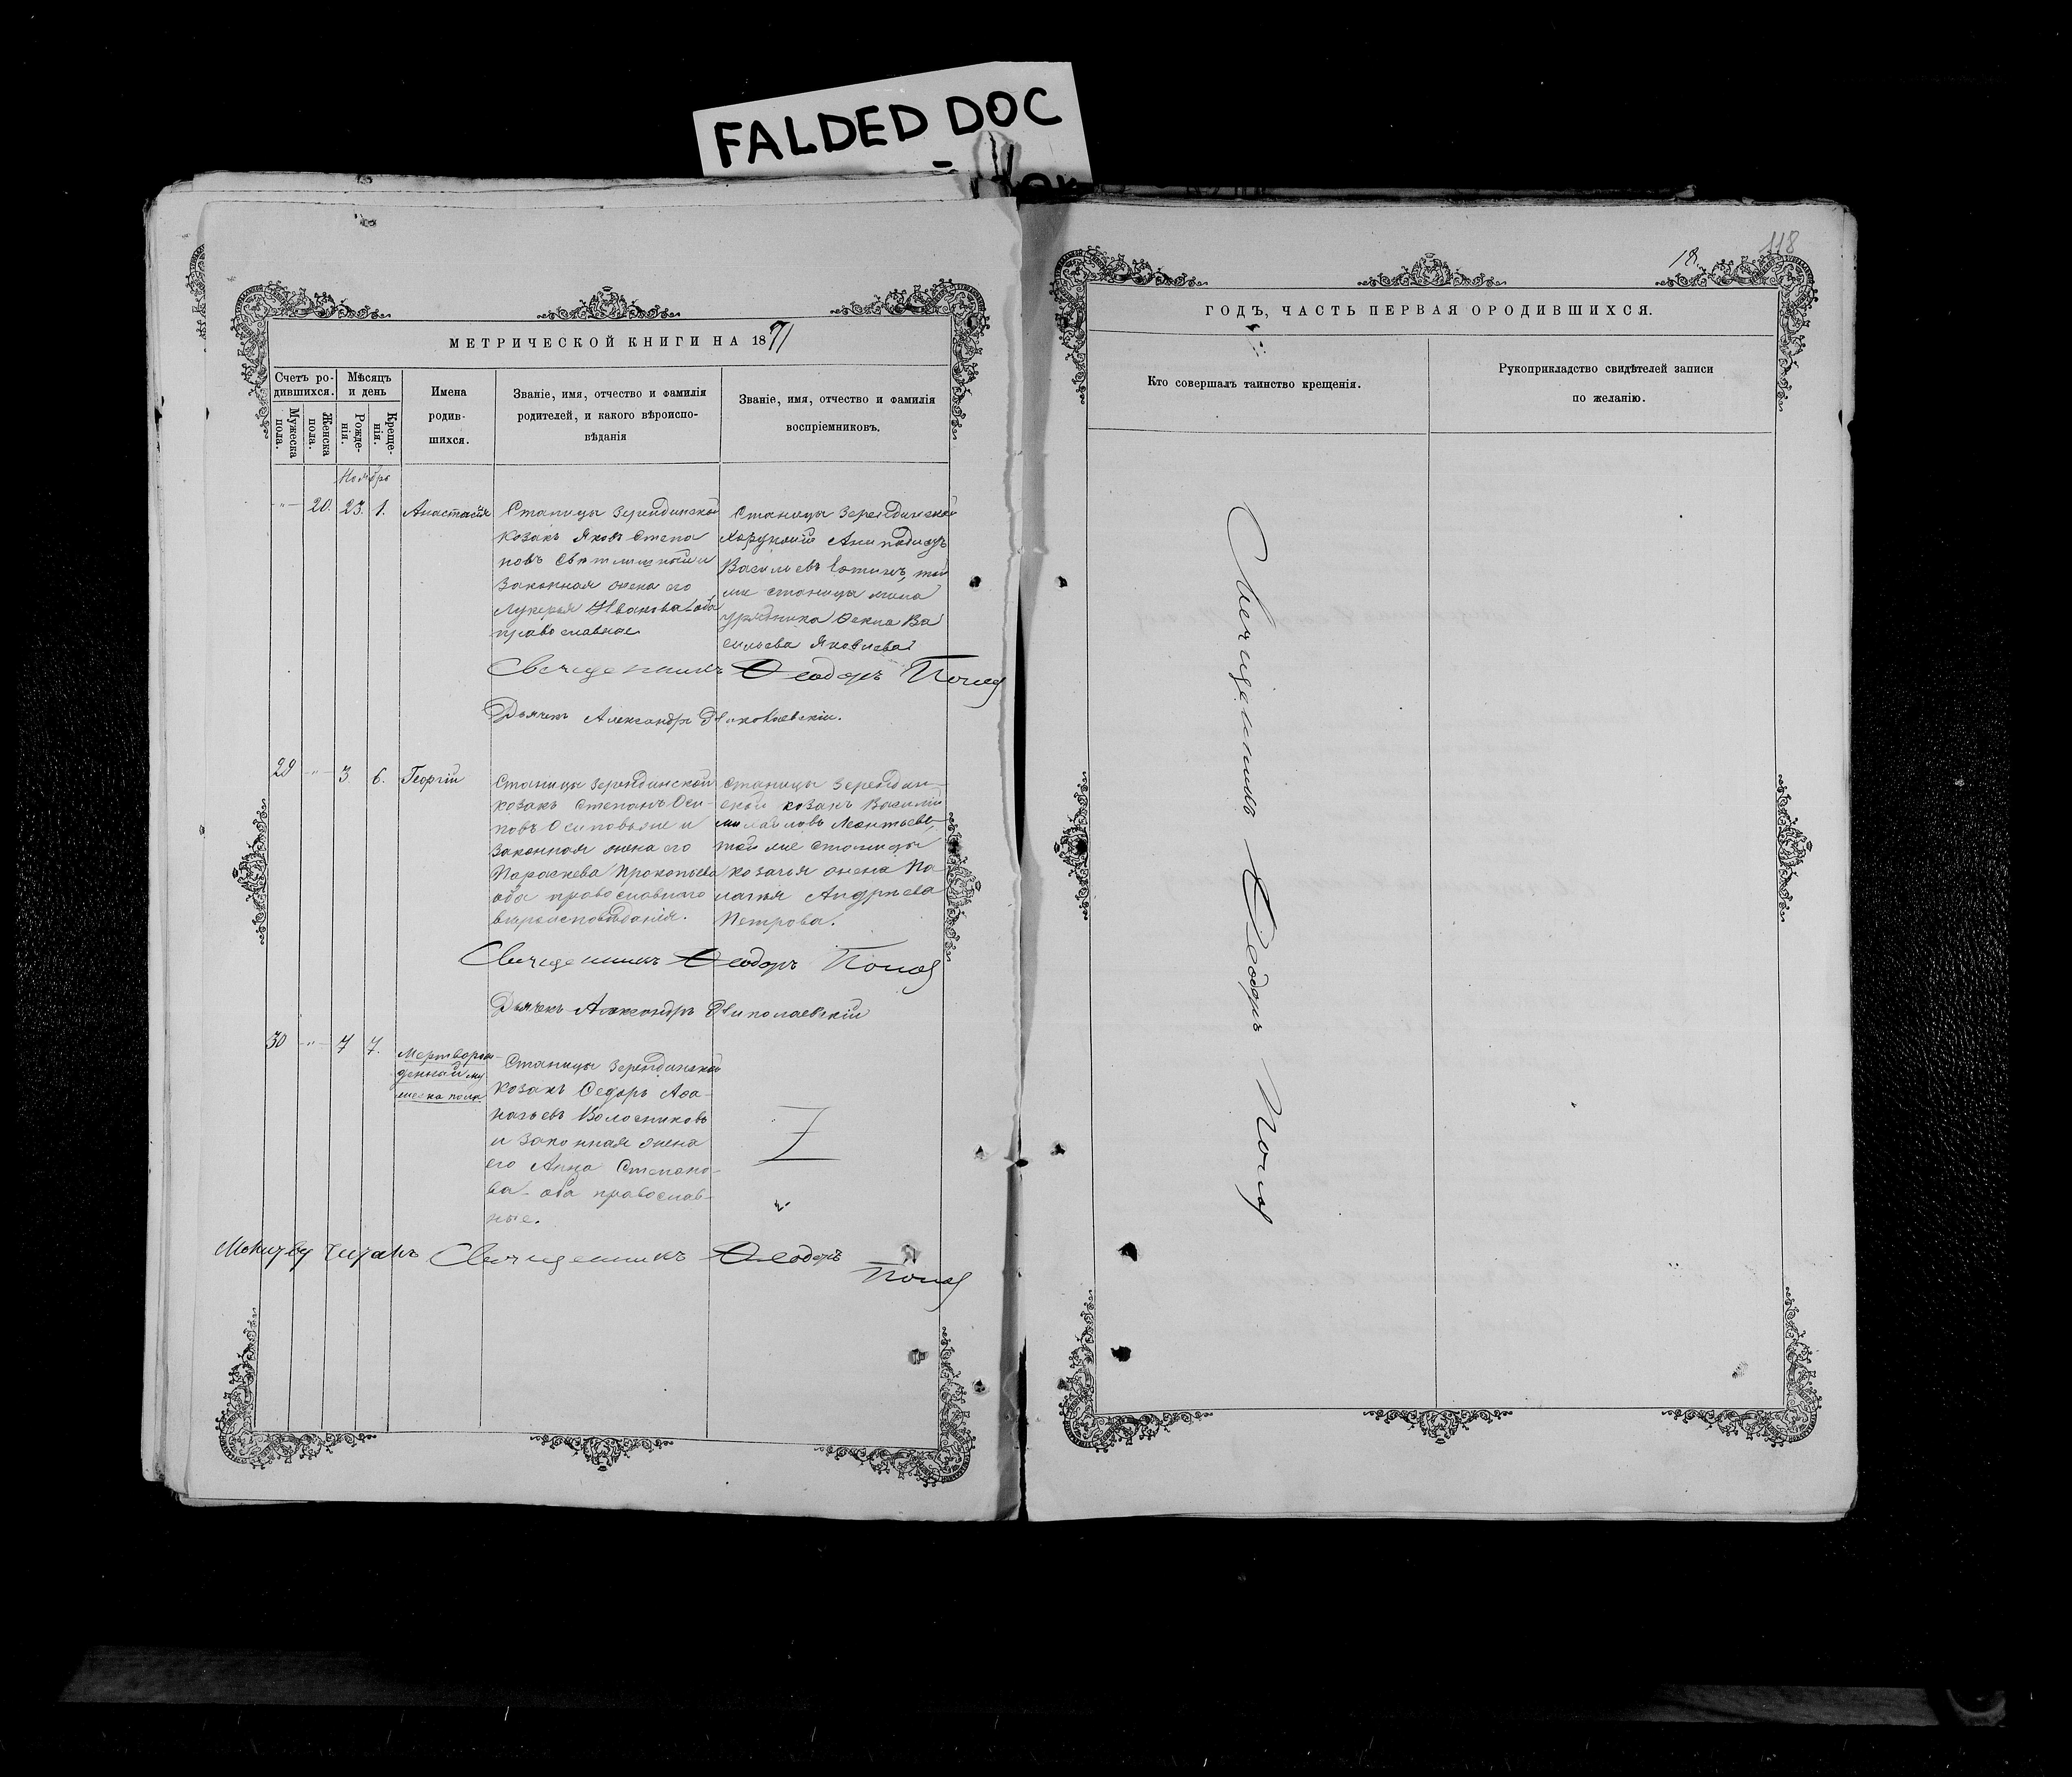 FALDED DOC
118
18.
МЕТРИЧЕСКОЙ КНИГИ НА 1871
Счетъ ро-
дившихся.
Мужеска
пола.
Женска
пола.
Мѣсяцъ
и день
Рожде-
нія.
Креще-
нія.
Имена
родив-
шихся.
Званіе, имя, отчество и фамилія
родителей, и какого вѣроиспо-
вѣданія
Званіе, имя, отчество и фамилія
воспріемниковъ.
Ноябрь
-"- 20. 23. 1. Анастасія
Станицы Зерендинской
козакъ Яковъ Степа
новъ Свѣтличный и
законная жена его
Лукерья Иванова оба
православные
Станицы Зерендинской
Хорунжій
Васильевъ
же станицы жена
урядника Ва
сильева Яковлева
Священникъ Ѳеодоръ Попов
Дьячекъ Александръ Николаевскій.
29 -"- 3 6. Георгій
Станицы Зерендинской
козакъ Степанъ Оси-
повъ и
законная жена его
Параскева Прокопьева
оба православнаго
вѣроисповѣданія.
Станицы Зерендин-
ской козакъ Василій
Михайловъ Леонтьевъ,
той же станицы
козачья жена Пе
лагѣя Андрѣева
Петрова.
Священникъ Ѳеодоръ Попов
Дьячекъ Александръ Николаевскій
30 -"- 7 7. Мертворож-
денный му
жеска пола
Станицы Зерендинской
козакъ Ѳедоръ Аѳа-
насьевъ Волосниковъ
и законная жена
его Анна Степано-
ва - оба православ-
ные.
Молитву читалъ Священникъ Ѳеодоръ
Попов
ГОДЪ, ЧАСТЬ ПЕРВАЯ О РОДИВШИХСЯ.
Кто совершалъ таинство крещенія.
Рукоприкладство свидѣтелей записи
по желанію.
Священникъ Ѳеодоръ Попов